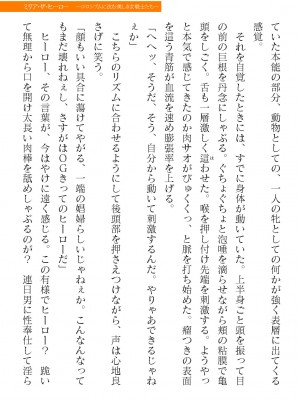 ていた本能の部分、動物としての、一人の牝としての何かが強く表層に出てくる
感覚。
それを自覚したときには、すでに身体が動いていた。上半身ごと頭を振って目
の前の巨根を丹念にしゃぶる。ぐちょぐちょと泡唾を滴らせながら頬の粘膜で亀
頭をしごく。舌も一層激しく這わせた。喉を押し付け先端を刺激する。ようやっ
と本気で感じてきたのか肉サオがびゅくっ、と脈を打ち始めた。瘤つきの表面
を這う青筋が血流を速め膨張率を上げる。
「へへッ、そうだ、そう、自分から動いて刺激するんだ。やりゃあできるじゃね
ぇか」
こちらのリズムに合わせるようにして後頭部を押さえつけながら、声は心地良
さげに笑う。
「顔もいい具合に蕩けてやがる。一端の娼婦らしいじゃねぇか。こんなんなって
もまだ壊れねぇ、さすがはOGきってのヒーローだ」
ヒーロー、その言葉が、今はやけに遠く感じる。この有様でヒーロー？　跪い
て無理から口を開け太長い肉棒を舐めしゃぶるのが？　連日男に性奉仕して淫ら